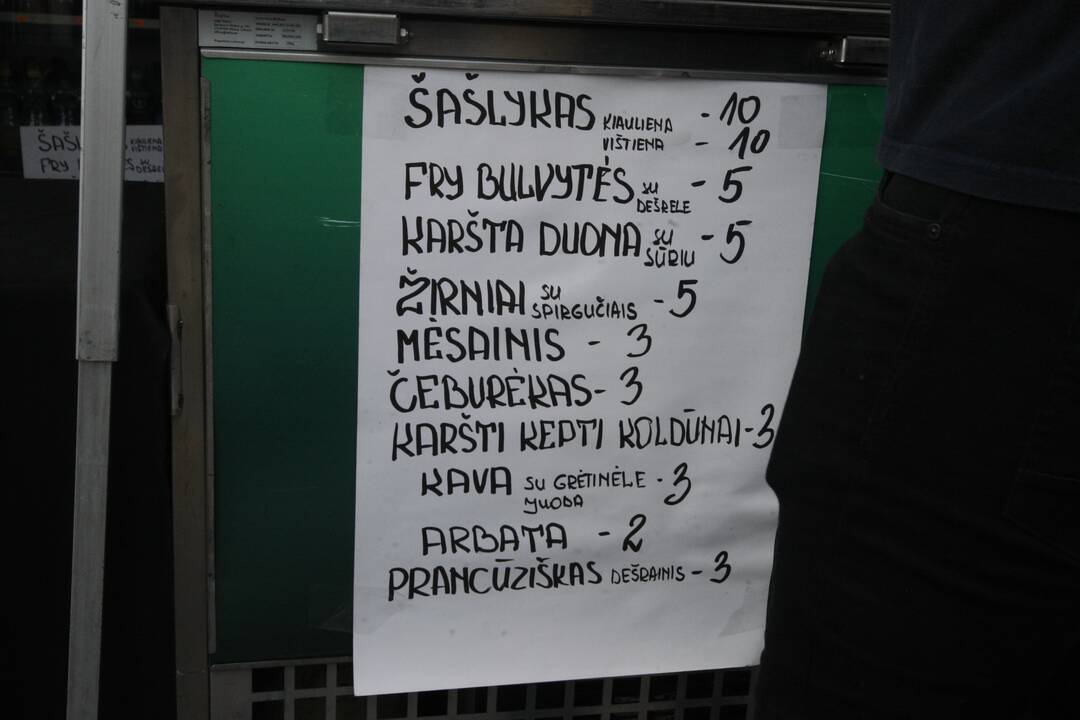 ŠAŠLYKAS KIAULIENA - 10
VIŠTIENA - 10
FRY BULVYTĖS SU DEŠRELE - 5
KARŠTA DUONA SU SŪRIU - 5
ŽIRNIAI SU SPIRGUČIAIS - 5
MĖSAINIS - 3
ČEBURĖKAS - 3
KARŠTI KEPTI KOLDŪNAI - 3
KAVA SU GRĖTINĖLE - 3
JUODA
ARBATA - 2
PRANCŪZIŠKAS DEŠRAINIS - 3
ŠAŠL KIAULIENA
VIŠTIENA
FRY